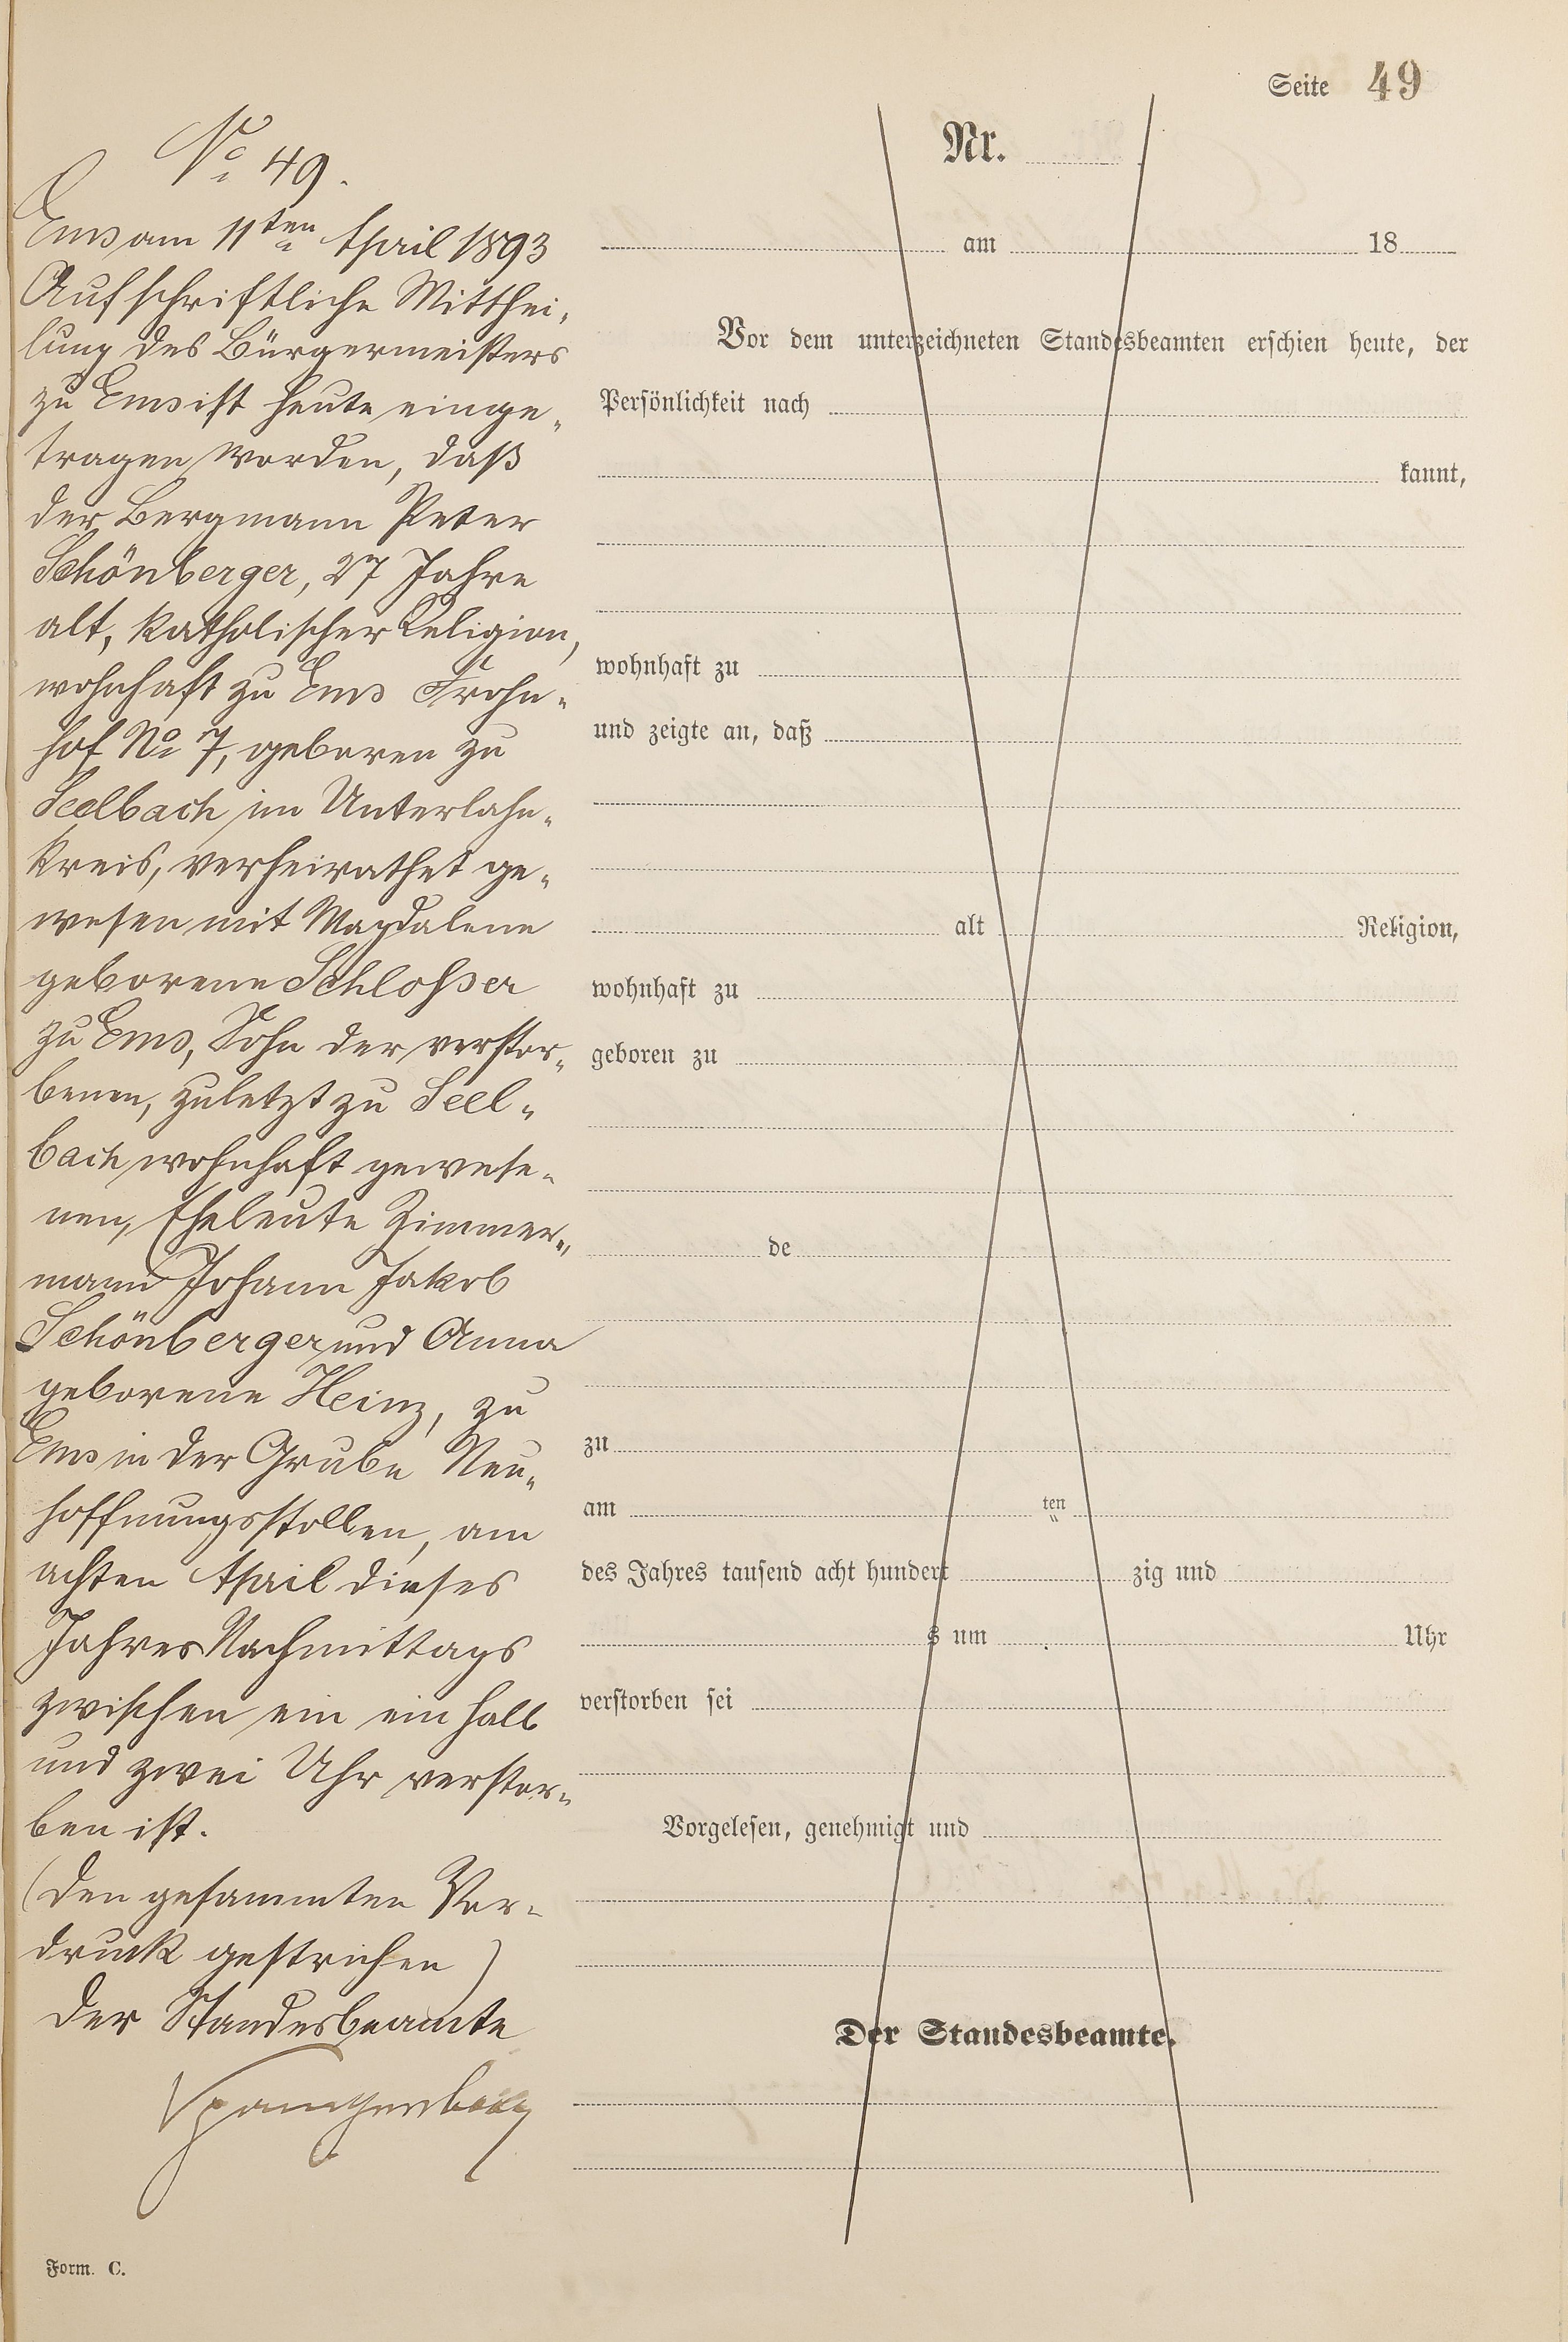 Seite 49
No 49.
Ems am 11ten April 1893
Auf schriftliche Mitthei-
lung des Bürgermeisters
zu Ems ist heute einge-
tragen worden, daß
der Bergmann Peter
Schönberger, 27 Jahre
alt, katholischer Religion,
wohnhaft zu Ems Frohn-
hof No 7, geboren zu
Seelbach im Unterlahn-
kreis, verheirathet ge-
wesen mit Magdalene
geborene Schlosser
zu Ems, Sohn der verstor-
benen, zuletzt zu Seel-
bach wohnhaft gewese-
nen, Eheleute Zimmer-
mann Johann Jakob
Schönberger und Anna
geborene Heinz, zu
Ems in der Grube Neu-
hoffnungsstollen, am
achten April dieses
Jahres Nachmittags
zwischen ein ein halb
und zwei Uhr verstor-
ben ist.
(Den gesammten Vor-
druck gestrichen)
Der Standesbeamte
Spangenberg
Nr.
am 18
Vor dem unterzeichneten Standesbeamten erschien heute, der
Persönlichkeit nach
kannt,
wohnhaft zu
und zeigte an, daß
alt Religion,
wohnhaft zu
geboren zu
de
zu
am ten
des Jahres tausend acht hundert zig und
s um Uhr
verstorben sei
Vorgelesen, genehmigt und
Der Standesbeamte.
Form. C.